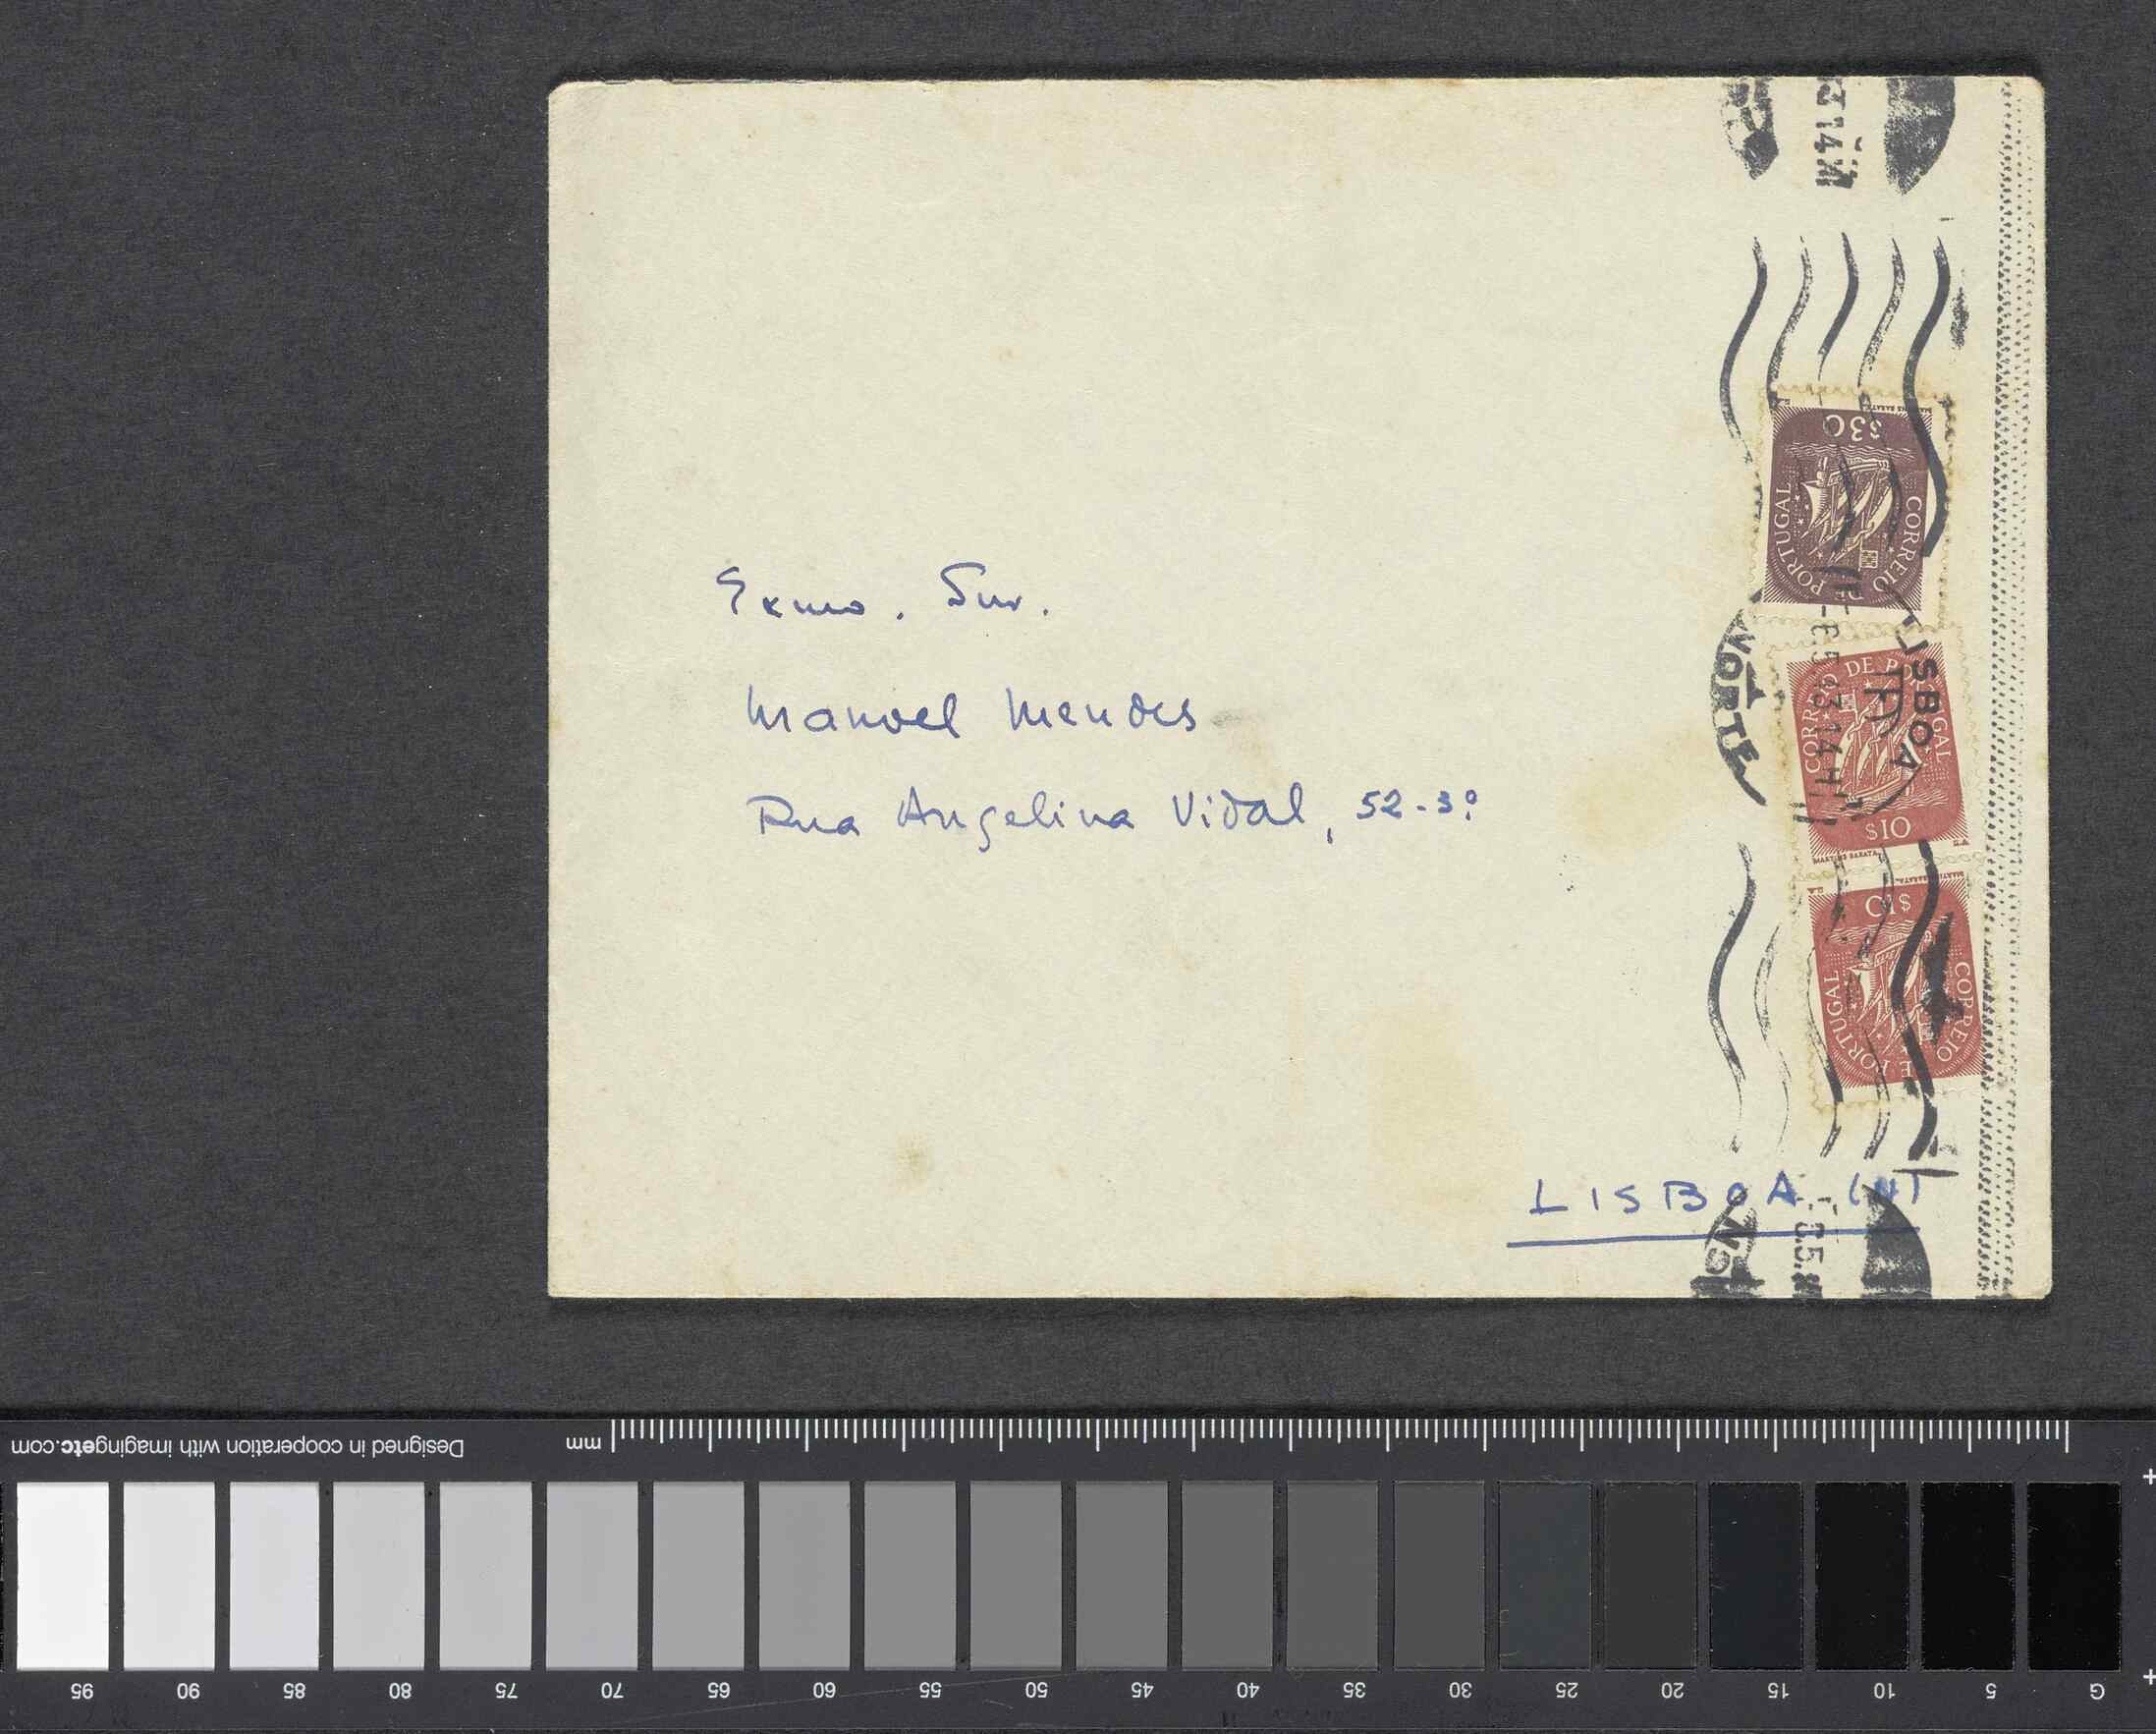 Exmo. Snr.
Manoel Mendes
Rua Angelina Vidal, 52-3º
LISBOA (N)
3 14
$30
CORREIO DE PORTUGAL
LISBOA
NORTE
14 H
CORREIO DE PORTUGAL
$10
MARTINS BARATA
$10
CORREIO DE PORTUGAL
Designed in cooperation with imagingetc.com
mm
95 90 85 80 75 70 65 60 55 50 45 40 35 30 25 20 15 10 5 G